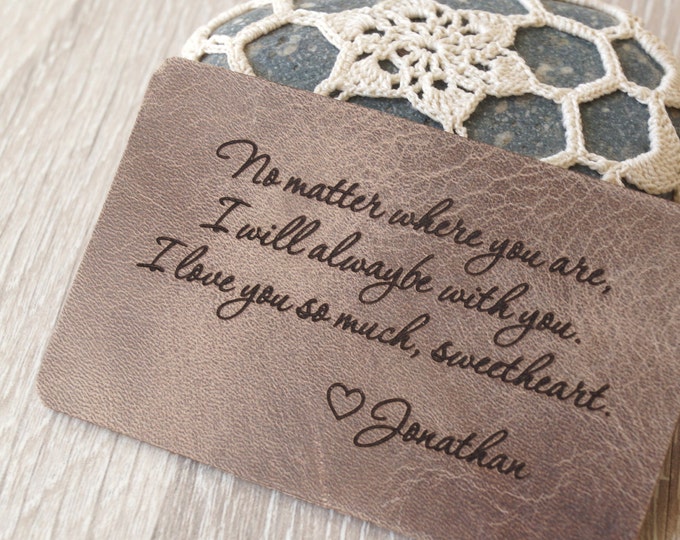 No matter where you are,
I will alwaybe with you.
I love you so much, sweetheart.
♡ Jonathan